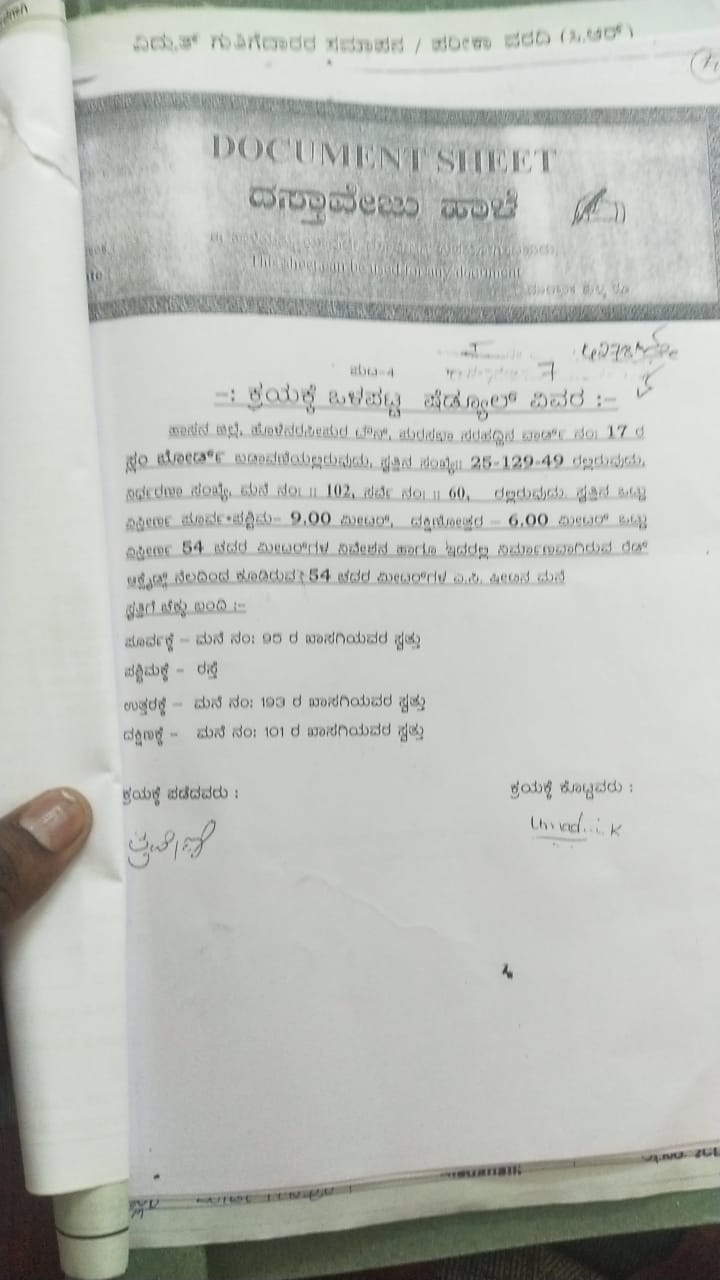 ವಿದ್ಯುತ್ ಗುತ್ತಿಗೆದಾರರ ಸಮಾಪನ / ಪರೀಕ್ಷಾ ವರದಿ (ಸಿ.ಆರ್)
DOCUMENT SHEET
ದಸ್ತಾವೇಜು ಹಾಳೆ
This sheet can be used for any document
ಪುಟ-4
7
-: ಕ್ರಯಕ್ಕೆ ಒಳಪಟ್ಟ ಷೆಡ್ಯೂಲ್ ವಿವರ :-
ಹಾಸನ ಜಿಲ್ಲೆ, ಹೊಳೆನರಸೀಪುರ ಟೌನ್, ಪುರಸಭಾ ಸರಹದ್ದಿನ ವಾರ್ಡ್ ನಂ: 17 ರ
ಸ್ಲಂ ಬೋರ್ಡ್ ಬಡಾವಣೆಯಲ್ಲಿರುವುದು, ಸ್ವತ್ತಿನ ಸಂಖ್ಯೆ: 25-129-49 ರಲ್ಲಿರುವುದು,
ನಿರ್ಧರಣಾ ಸಂಖ್ಯೆ, ಮನೆ ನಂ: 102, ಸರ್ವೆ ನಂ: 60, ರಲ್ಲಿರುವುದು ಸ್ವತ್ತಿನ ಒಟ್ಟು
ವಿಸ್ತೀರ್ಣ ಪೂರ್ವ-ಪಶ್ಚಿಮ- 9.00 ಮೀಟರ್, ದಕ್ಷಿಣೋತ್ತರ - 6.00 ಮೀಟರ್ ಒಟ್ಟು
ವಿಸ್ತೀರ್ಣ 54 ಚದರ ಮೀಟರ್‌ಗಳ ನಿವೇಶನ ಹಾಗೂ ಇದರಲ್ಲಿ ನಿರ್ಮಾಣವಾಗಿರುವ ರೆಡ್
ಆಕ್ಸೈಡ್ ನೆಲದಿಂದ ಕೂಡಿರುವ 54 ಚದರ ಮೀಟರ್‌ಗಳ ಎ.ಸಿ. ಶೀಟಿನ ಮನೆ
ಸ್ವತ್ತಿಗೆ ಚೆಕ್ಕು ಬಂದಿ :-
ಪೂರ್ವಕ್ಕೆ - ಮನೆ ನಂ: 95 ರ ಖಾಸಗಿಯವರ ಸ್ವತ್ತು
ಪಶ್ಚಿಮಕ್ಕೆ - ರಸ್ತೆ
ಉತ್ತರಕ್ಕೆ - ಮನೆ ನಂ: 193 ರ ಖಾಸಗಿಯವರ ಸ್ವತ್ತು
ದಕ್ಷಿಣಕ್ಕೆ - ಮನೆ ನಂ: 101 ರ ಖಾಸಗಿಯವರ ಸ್ವತ್ತು
ಕ್ರಯಕ್ಕೆ ಪಡೆದವರು : ಕ್ರಯಕ್ಕೆ ಕೊಟ್ಟವರು :